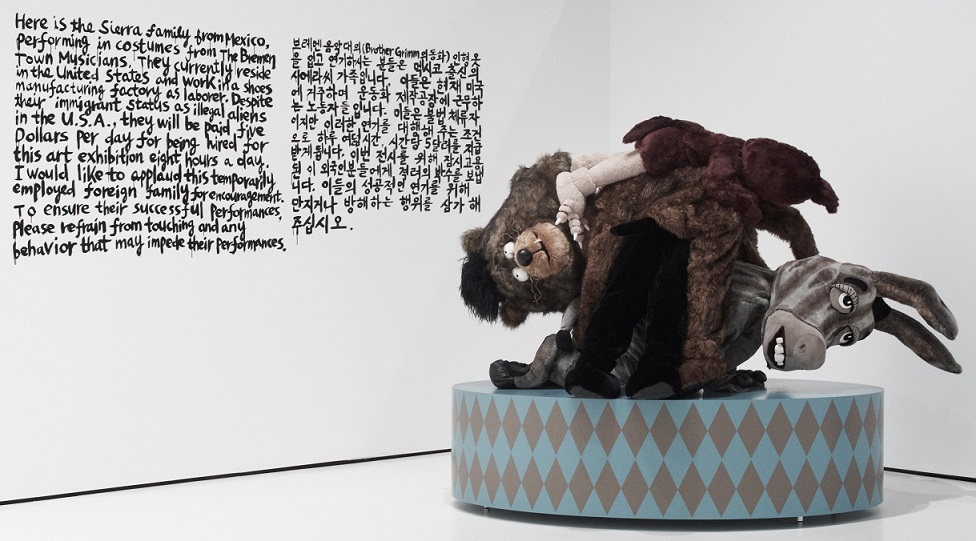 Here is the Sierra family from Mexico,
Performing in costumes from The Bremen
Town Mysicians. They currently reside
in the United States and work in a shoes
manufacturing factory as laborer. Despite
their immigrant status as illegal aliens
in the U.S.A., they will be paid five
Dollars per day for being hired for
this art exhibition eight hours a day.
I would like to applaud this temporarily
employed foreign family for encouragement.
To ensure their successful performances,
Please refrain from touching and any
behavior that may impede their performances.
브레멘 음악대의(Brother Grimm의 동화) 인형 옷
을 입고 연기하시는 분들은 멕시코 출신의
시에라씨 가족입니다. 이들은 현재 미국
에 거주하며 운동화 제작공장에 근무하
는 노동자들입니다. 이들은 불법 체류자
이지만 이러한 연기를 대해 해 주는 조건
으로 하루 여덟시간, 시간당 5달러를 지급
받게 됩니다. 이번 전시를 위해 잠시 고용
된 이 외국인분들에게 격려의 박수를 보냅
니다. 이들의 성공적인 연기를 위해
만지거나 방해하는 행위를 삼가 해
주십시오.